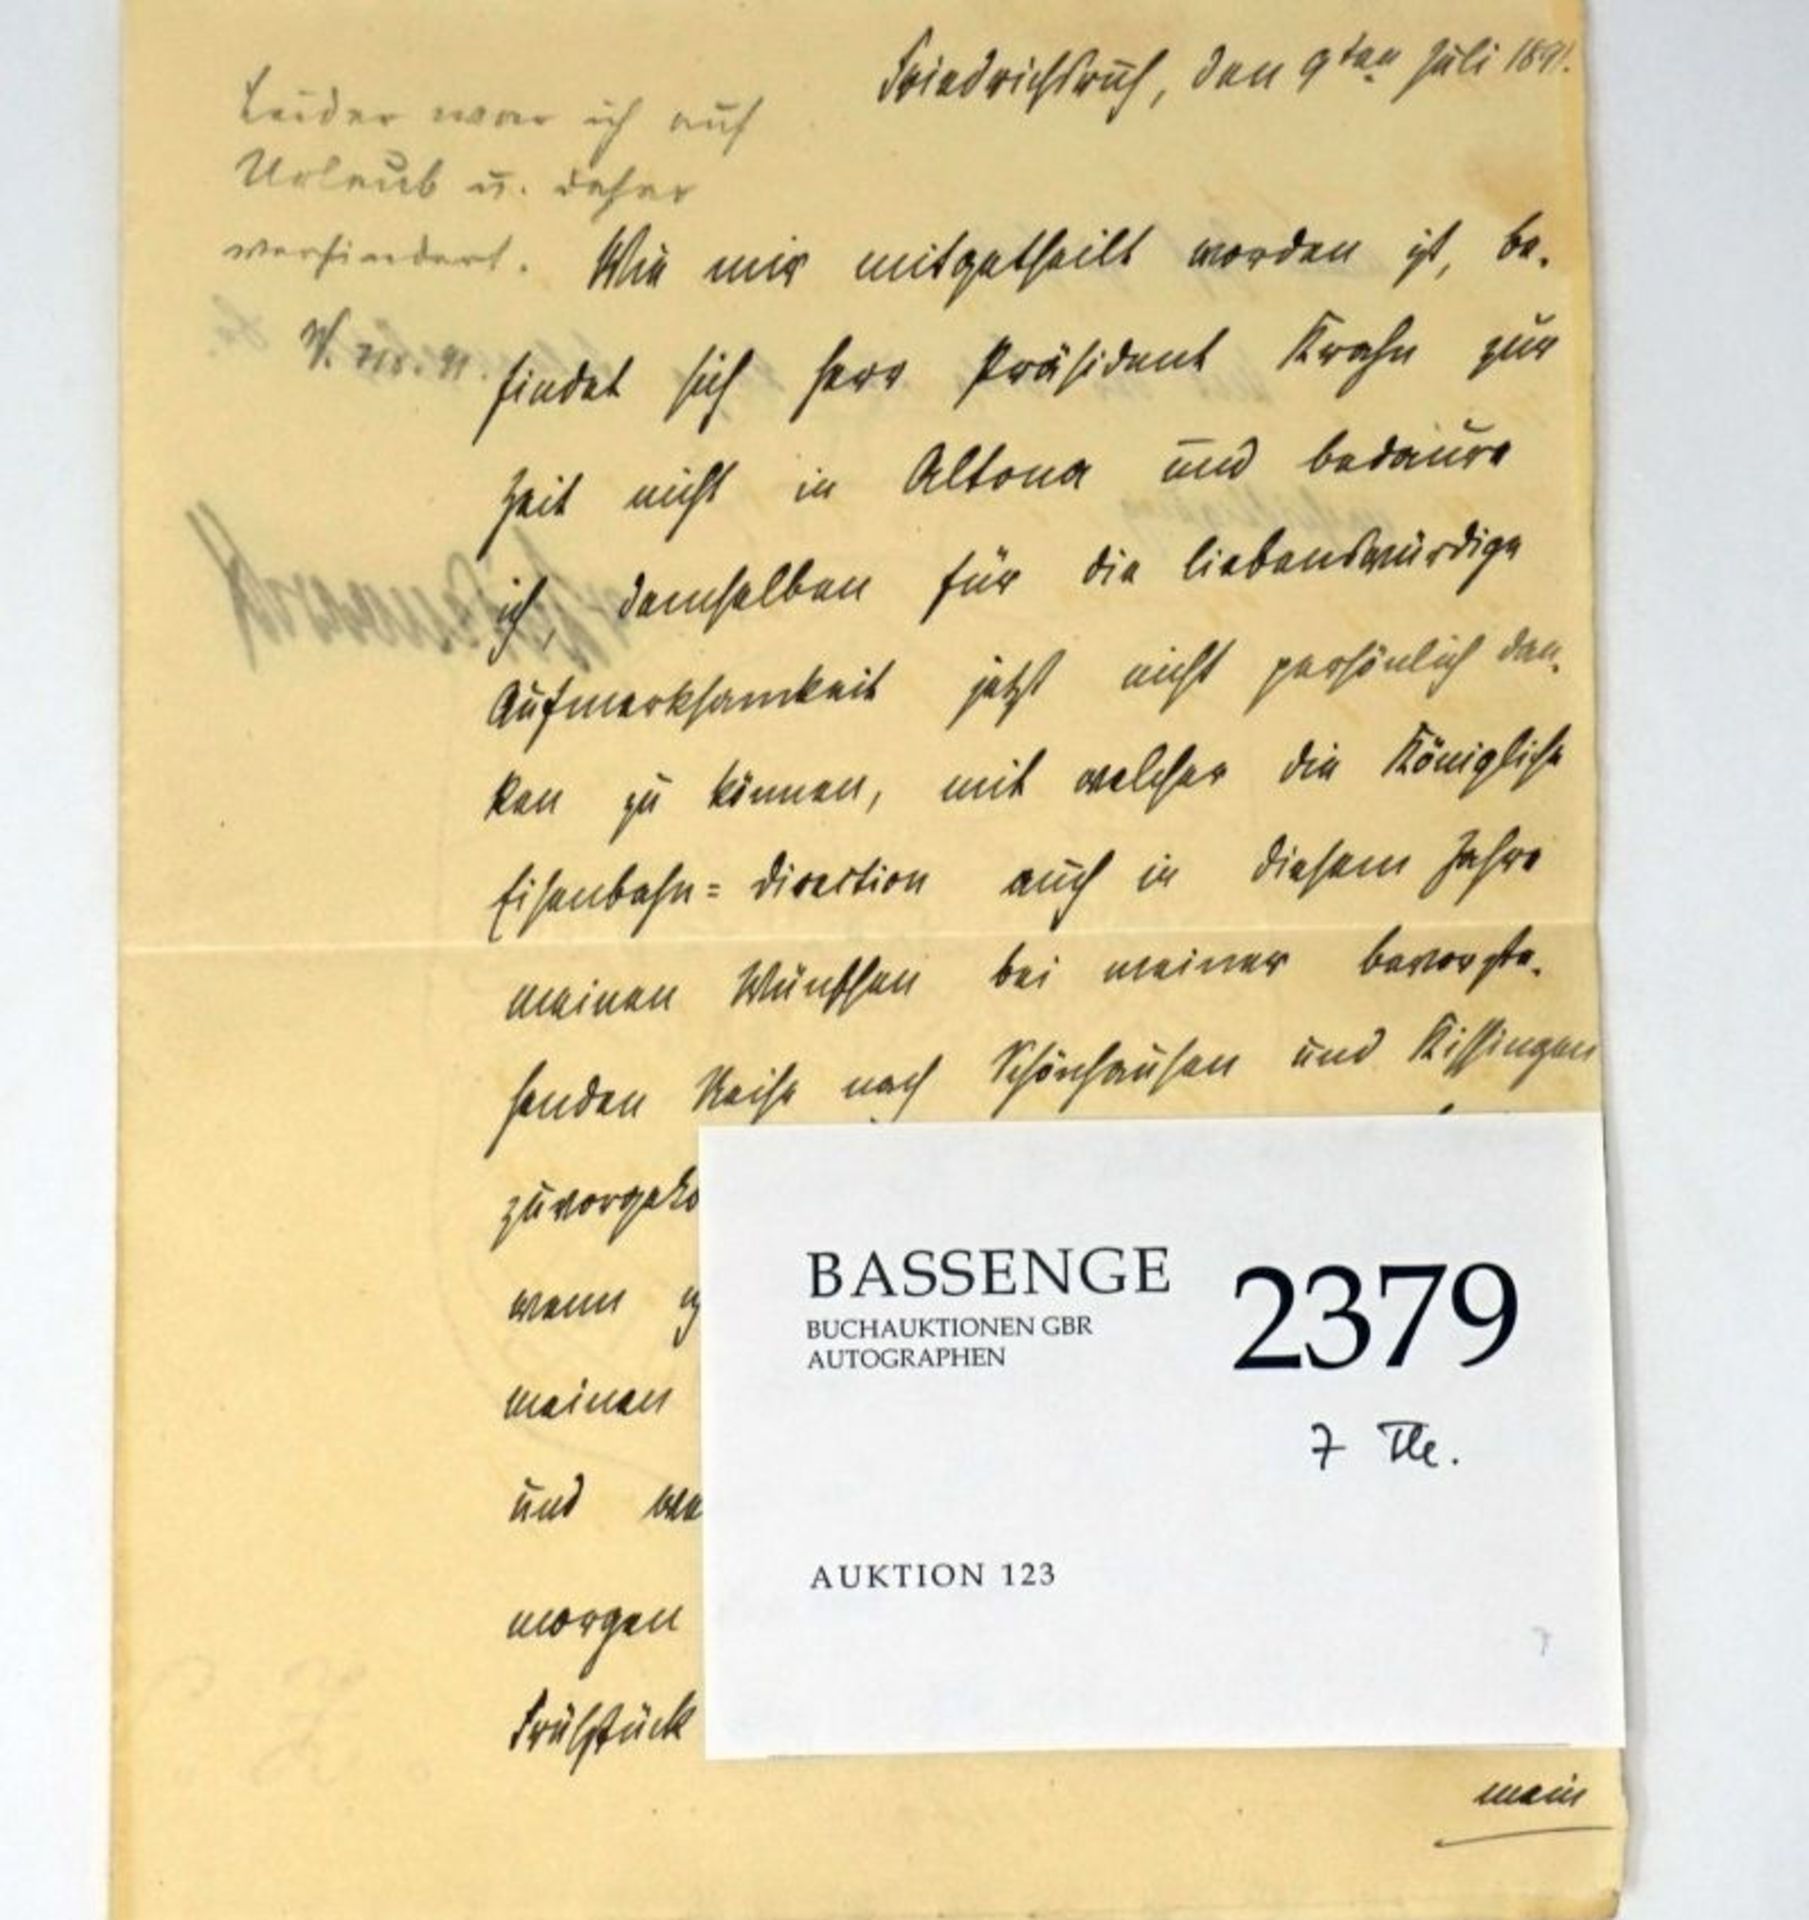 Friedrichsruh, den 9ten Juli 1891.
Leider war ich auf
Urlaub u. daher
verhindert.
Wie mir mitgetheilt worden ist, be-
findet sich Herr Präsident Krahn zur
Zeit nicht in Altona und bedaure
ich, demselben für die liebenswürdige
Aufmerksamkeit jetzt nicht persönlich dan-
ken zu können, mit welcher die Königliche
Eisenbahn=Direction auch in diesem Jahre
meinen Wünschen bei meiner bevorste-
henden Reise nach Schönhausen und Kissingen
zuvorgeko
wenn
meinen
und
morgen
Frühstück
mein
BASSENGE
BUCHAUKTIONEN GBR
AUTOGRAPHEN
2379
7 Tle.
AUKTION 123